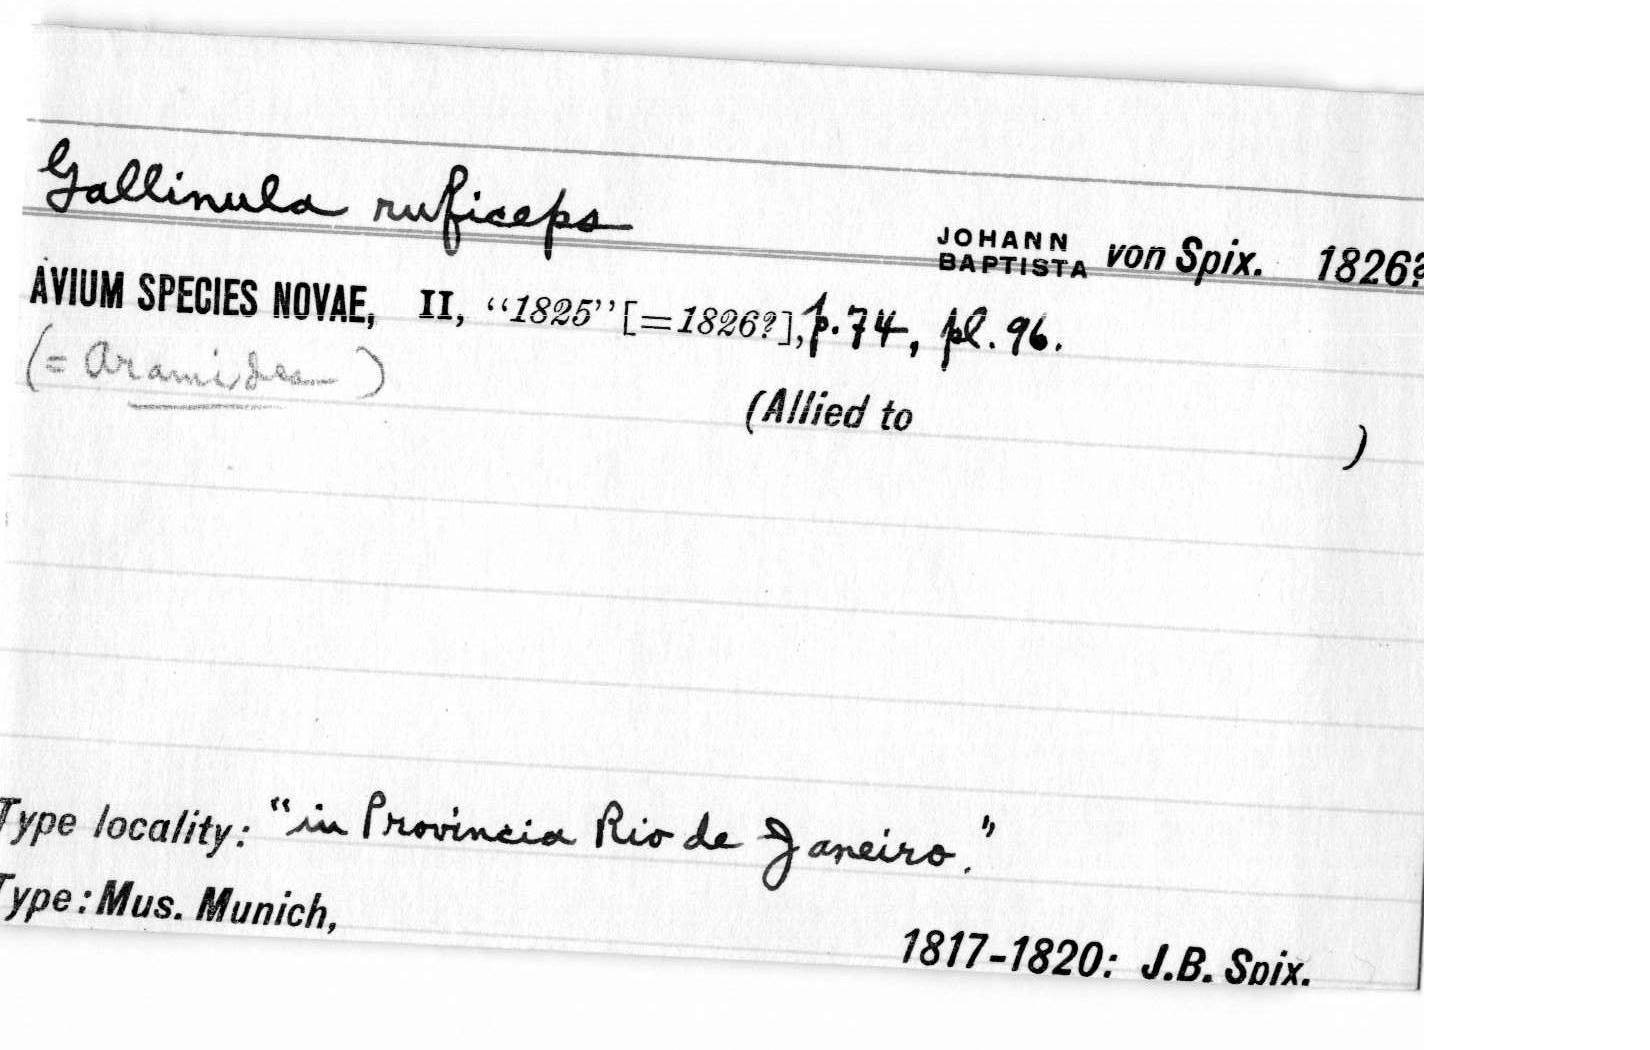 Gallinula ruficeps JOHANN BAPTISTA von Spix. 1826?
AVIUM SPECIES NOVAE, II, “1825” [=1826?], p. 74, pl. 96.
(= Aramides)
(Allied to )
Type locality: “in Provincia Rio de Janeiro.”
Type: Mus. Munich,
1817-1820: J.B. Spix.